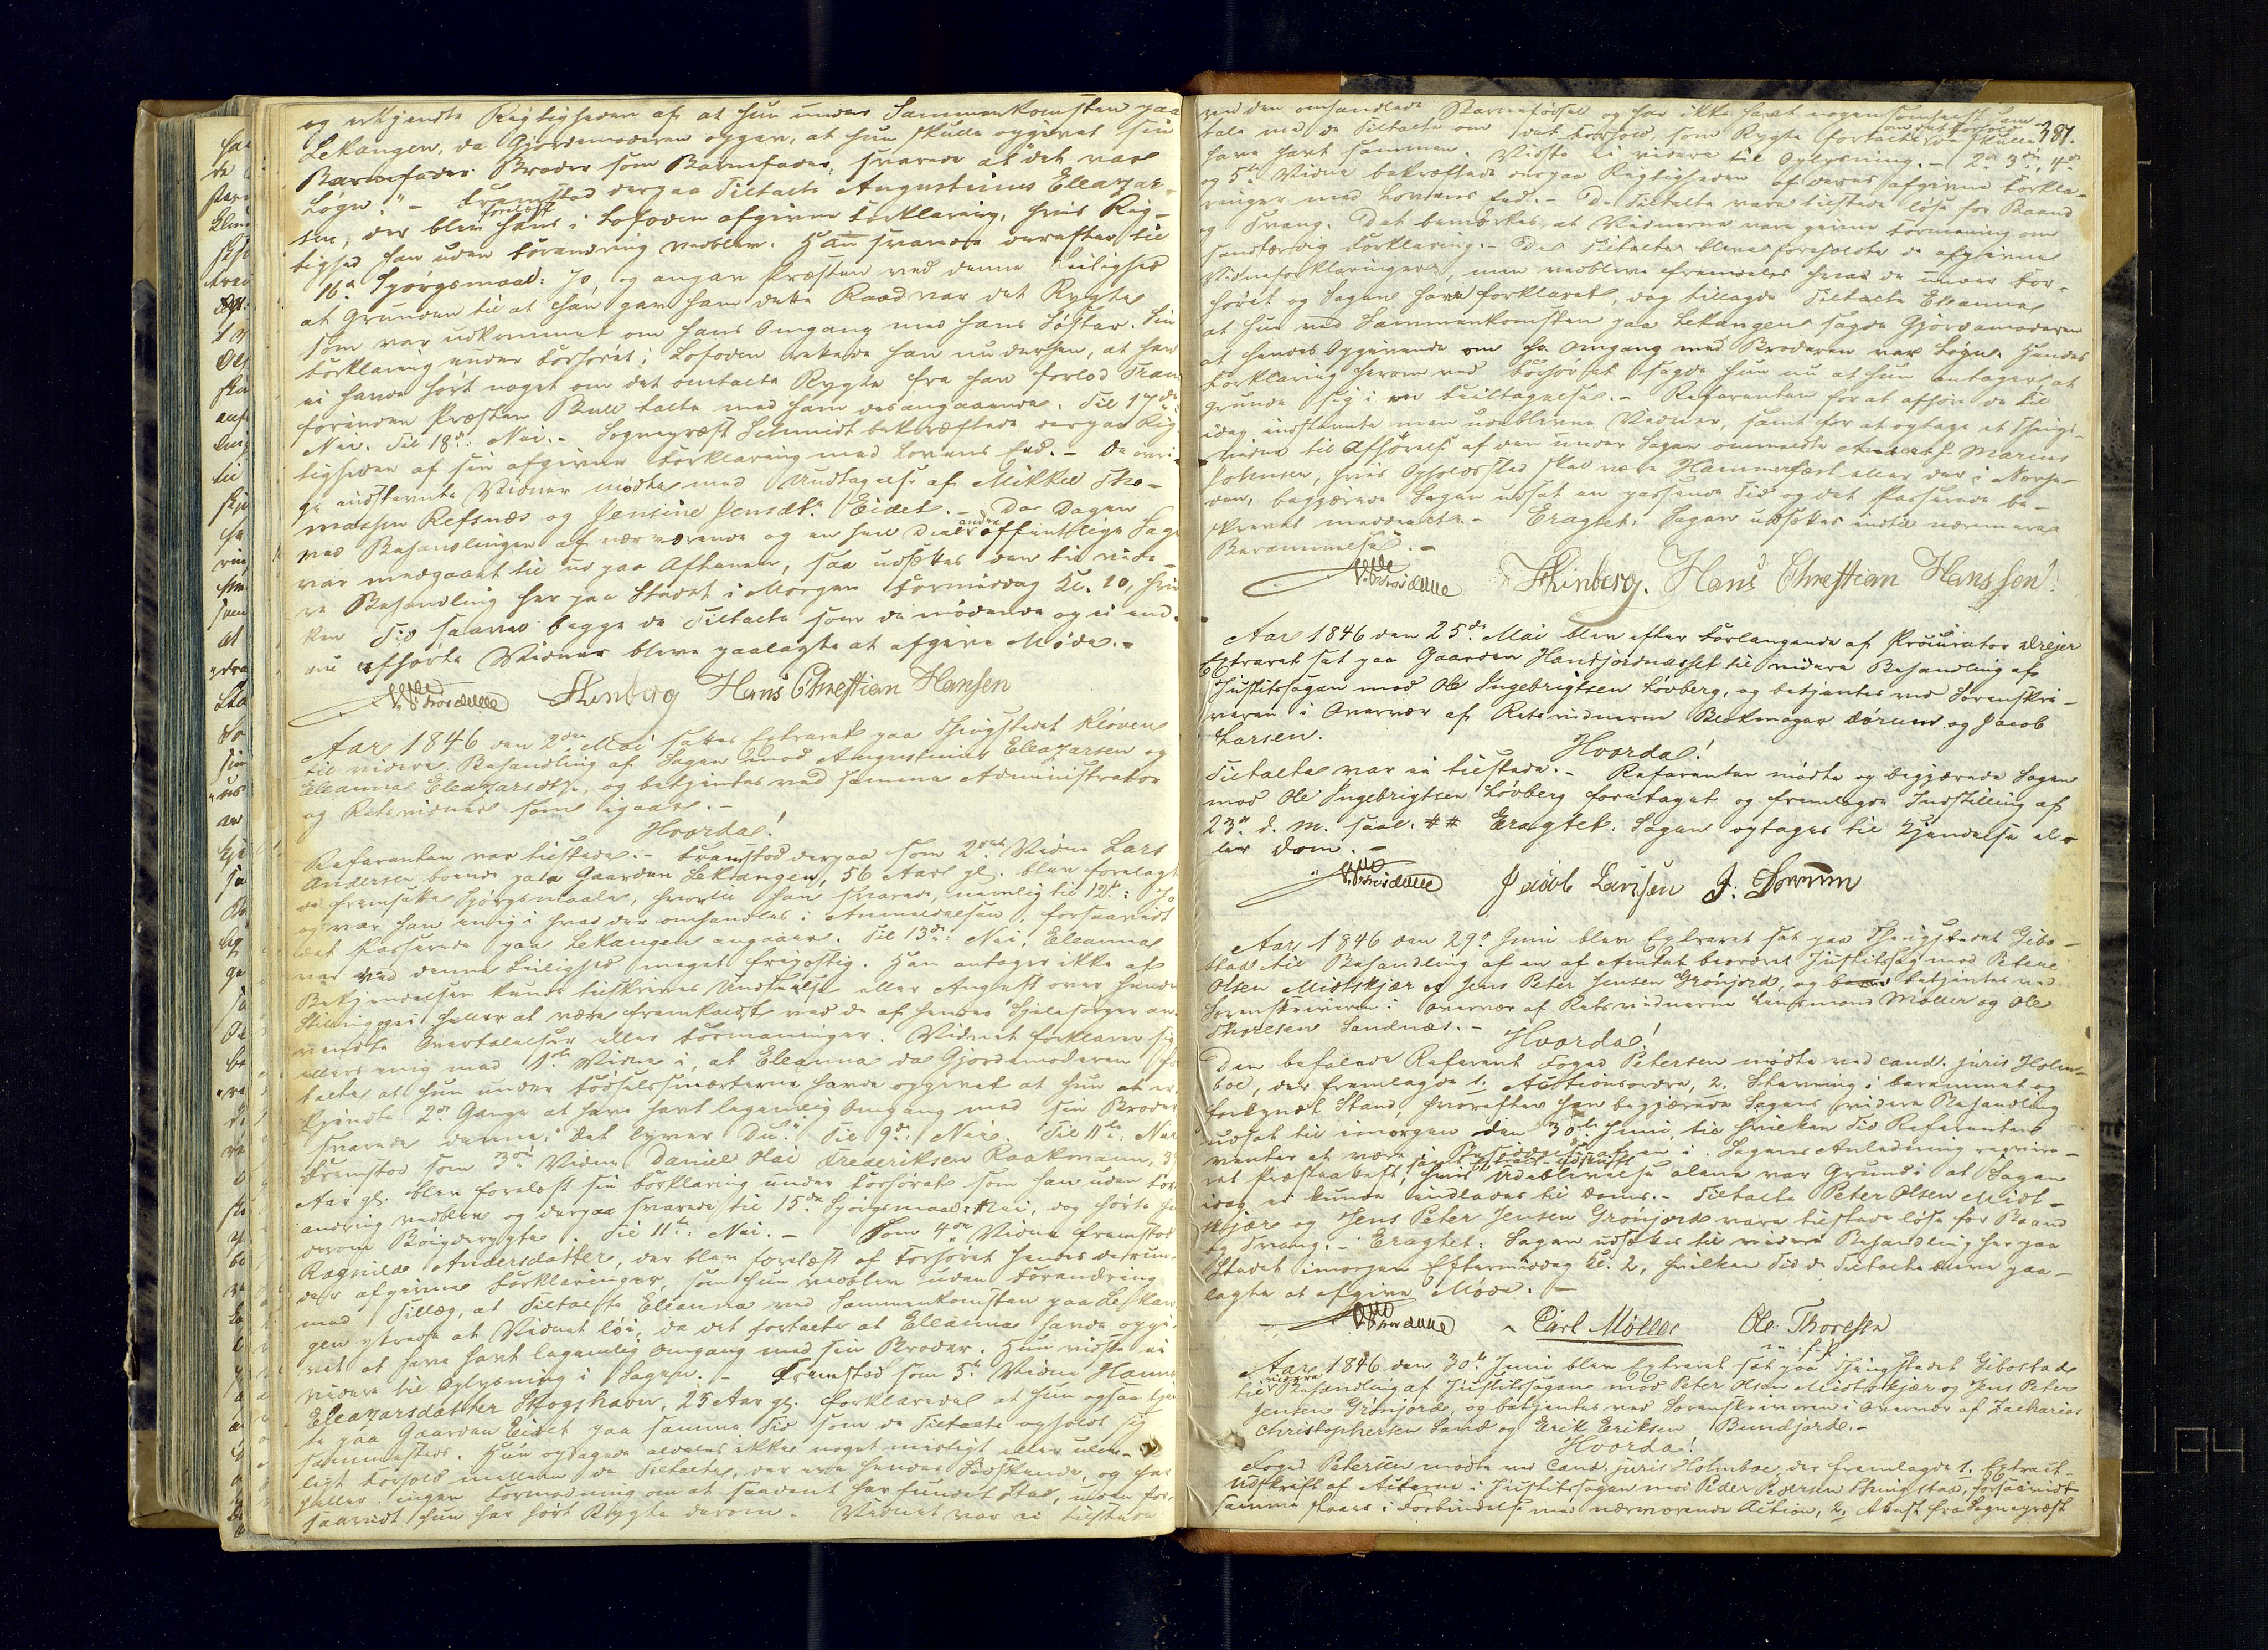 og erkjendte Rigtigheden af at hun under Sammenkomsten paa
Lekangen, da Gjordemoderen opgav, at hun skulle opgivet sin
Barnefader Broder som Barnefader, svarede at "det var
Løgn". – Fremstod derpaa Tiltalte Augustinus Eleazar-
sen, der blev forelæst hans i Lofoden afgivne Forklaring, hvis Rig-
tighed han uden Forandring vedblev. Han svarede derefter til
16de Spørgsmaal: Jo, og angav Præsten ved denne Leilighed
at Grunden til at han gav ham dette Raad var det Rygte
som var udkommet om hans Omgang med hans Søster. Sin
Forklaring under Forhøret i Lofoden rettede han nu derhen, at han
ei havde hørt noget om det omtalte Rygte fra han forlod Tran
førinden Præsten Bull talte med ham desangaaende. Til 17de
Nei. Til 18de: Nei. – Sognepræst Schmidt bekræftede derpaa Rig-
tigheden af sin afgivne Forklaring med Lovens Eed. – De øvri-
ge indstevnte Vidner mødte med Undtagelse af Mikkel Tho-
massen Refsnæs og Jensine Jensdtr. Eidet. – Da Dagen
ved Behandlingen af nærværende og en heel Deel andre offentlige Sage
var medgaaet til ud paa Aftenen, saa udsættes den til vide-
re Behandling her paa Stedet i Morgen Formiddag Kl. 10, hvil
ken Tid saavel begge de Tiltalte som de mødende og ei end-
nu afhørte Vidner bleve paalagte at afgive Møde. –
Steinberg Hans Chrestian Hansen
Aar 1846 den 2den Mai sattes Extraret paa Thingstedet Kløven
til videre Behandling af Sagen mod Augustinus Eleazarsen og
Eleanna Eleazarsdtr., og betjentes ved samme Administrator
og Retsvidner som igaar. –
Hvorda!
Referenten var tilstede. – Fremstod derpaa som 2det Vidne Lars
Andersen boende paa Gaarden Lekangen, 56 Aar gl. blev forelagt
de fremsatte Spørgsmaale, hvortil han svarede, nemlig til 12te: Jo
og var han enig i hvad der omhandles i Anmeldelsen, forsaavidt
det Passerede paa Lekangen angaaer. Til 13de: Nei, Eleanna
var ved denne Leilighed meget frepostig. Han antager ikke at
Bekjendelsen kunde tilskrives Undseelse eller Angst over hendes
Stilling, ei heller at være fremkaldt ved de af hendes Sjælesørger an-
vendte Overtalelser eller Formaninger. Vidnet forklarer sig
ellers enig med 1ste Vidne i, at Eleanna da Gjordemoderen for
talte at hun under Fødselssmerterne havde opgivet at hun at er
kjendte 2de Gange at have havt legemlig Omgang med sin Broder
svarede denne: "det lyver Du". Til 9de: Nei. Til 11te: Nei
Fremstod som 3die Vidne Daniel Hai Frederiksen Kaakmann, 3
Aar gl. blev forelæst sin Forklaring under Forhøret som han uden For
andring vedblev og derpaa svarede til 15de Spørgsmaal: Nei, dog hørte han
derom Bøigderygte. Til 11te: Nei. – Som 4de Vidne fremstod
Ragnilda Andersdatter, der blev forelæst af Forhøret hendes derun-
der afgivne Forklaringer, som hun vedblev uden Forandring
med Tillæg, at Tiltalte Eleanna ved Sammenkomsten paa Lekan
gen yttrede at Vidnet løi, da det fortalte at Eleanna havde opgi-
vet at have havt legemlig Omgang med sin Broder. Hun vidste ei
videre til Oplysning i Sagen. – Fremstod som 5te Vidne Hanna
Eleazarsdatter Skogshavn, 25 Aar gl. forklarede at hun ogsaa tjen
te paa Gaarden Eidet paa samme Tid som de Tiltalte opholdt sig
sammesteds. Hun opdagede aldeles ikke noget misligt eller utem-
ligt Forhold mellem de Tiltalte, der ere hendes Sødskende, og har
heller ingen Formodning om at saadant har fundet Sted, uden for-
saavidt hun har hørt Rygte derom. Vidnet var ei tilstede
381.
ved den omhandlede Barnefødsel og har ikke havt nogensomhelst Sam-
tale med de Tiltalte om det Forhold, som Rygte fortalte de skulle
om det Forhold
have havt sammen. Vidste ei videre til Oplysning. – 2det 3die, 4de
og 5te Vidne bekræftede derpaa Rigtigheden af deres afgivne Forkla-
ringer med Lovens Eed. – De Tiltalte vare tilstede løse for Baand
og Tvang. Det bemærkes at Vidnerne vare givne Formaning om
sandfærdig Forklaring. – De Tiltalte bleve foreholdte de afgivne
Vidneforklaringer, men vedbleve fremdeles hvad de under For-
høret og Sagen have forklaret, dog tillagde Tiltalte Eleanna
at hun ved Sammenkomsten paa Lekangen sagde Gjordemoderen
at hendes Opgivende om Omgang med Broderen var Løgn. Hendes
Forklaring herom ved Forhøret sagde hun nu at hun antager at
grunde sig i en Feiltagelse. – Referenten for at afhøre de til
idag indstevnte men udeblevne Vidner, samt for at optage et Things-
vidne til Afhørelse af den under Sagen ommeldte Marcus
Johnsen, hvis Opholdssted skal være Hammerfest eller der i Nærhe-
den, begjærede Sagen udsat en passende Tid og det Passerede be-
skrevet meddeelt. – Eragtet: Sagen udsættes indtil nærmere
Berammelse. –
Steinberg. Hans Chrestian Hanssen.
Aar 1846 den 25de Mai blev efter Forlangende af Procurator Dreyer
Extraret sat paa Gaarden Havfjordnæsset til videre Behandling af
Justitssagen mod Ole Ingebrigtsen Løvberg, og betjentes ved Sorenskri-
veren i Overvær af Retsvidnerne Blokmager Dørum og Jacob
Larsen.
Hvorda!
Tiltalte var ei tilstede. – Referenten mødte og begjærede Sagen
mod Ole Ingebrigtsen Løvberg foretaget og fremlagde Indstilling af
23de d. M. saal. ## Eragtet. Sagen optages til Kjendelse el-
ler Dom. –
Jacob Larsen J. Dørrum
Aar 1846 den 29de Juni blev Extraret sat paa Thingstedet Gibo-
stad til Behandling af en af Amtet beordret Justitssag mod Peter
Olsen Midtskjær og Jens Peter Jensen Grønjord, og betjentes ved
Sorenskriveren i Overvær af Retsvidnerne Lensmand Møller og Ole
Thoresen Sandnæs. –
Hvorda!
Den befalede Referent Foged Petersen mødte ved cand. juris Holm-
boe, der fremlagde 1. Actionsordre, 2. Stevning i berammet og
forkyndt Stand, hvorefter han begjærede Sagens videre Behandling
udsat til imorgen den 30te Juni, til hvilken Tid Referenten
venter at være i Besiddelse af en i Sagens Anledning reqvire-
ret Præsteattest, hvis Udeblivelse alene var Grund i at Sagen
idag ei kunde indlades til Doms. – Tiltalte Peter Olsen Midt-
skjær og Jens Peter Jensen Grønjord vare tilstede løse for Baand
og Tvang. – Eragtet: Sagen udsættes til videre Behandling her paa
Stedet imorgen Eftermiddag Kl. 2, hvilken Tid de Tiltalte bleve paa-
lagte at afgive Møde. –
Carl Møller Ole Thoresen
Aar 1846 den 30te Juni blev Extraret sat paa Thingstedet Gibostad
til videre Behandling af Justitssagen mod Peter Olsen Midtskjær og Jens Peter
Jensen Grønjord, og betjentes ved Sorenskriveren i Overvær af Zacharias
Christophersen Sand og Erik Eriksen Bundjorde. –
Hvorda!
Foged Petersen mødte ved Cand. juris Holmboe, der fremlagde 1. Extract-
Udskrift af Acterne i Justitssagen mod Peder Pedersen Thingstad, forsaavidt
samme staaer i Forbindelse med nærværende Action, 2. Attest fra Sognepræst